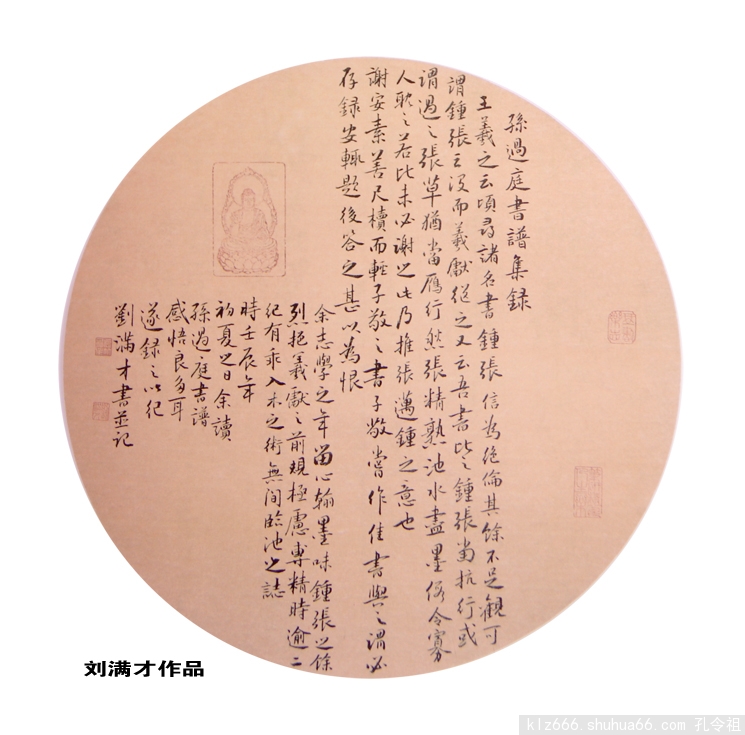 孫過庭書譜集録
王羲之云頃尋諸名書鍾張信為絕倫其餘不足觀可
謂鍾張云沒而羲獻繼之又云吾書比之鍾張當抗行或
謂過之張草猶當鴈行然張精熟池水盡墨假令寡
人耽之若比未必謝之此乃推張邁鍾之意也
謝安素善尺牘而輕子敬之書子敬嘗作佳書與之謂必
存録安輒題後答之甚以為恨
余志學之年留心翰墨味鍾張之餘
烈挹羲獻之前規極慮專精時逾二
紀有乖入木之術無間臨池之誌
時壬辰年
初夏之日余讀
孫過庭書譜
感悟良多耳
遂録之以紀
劉滿才書並記
刘满才作品
klz666.shuhua66.com 孔令祖